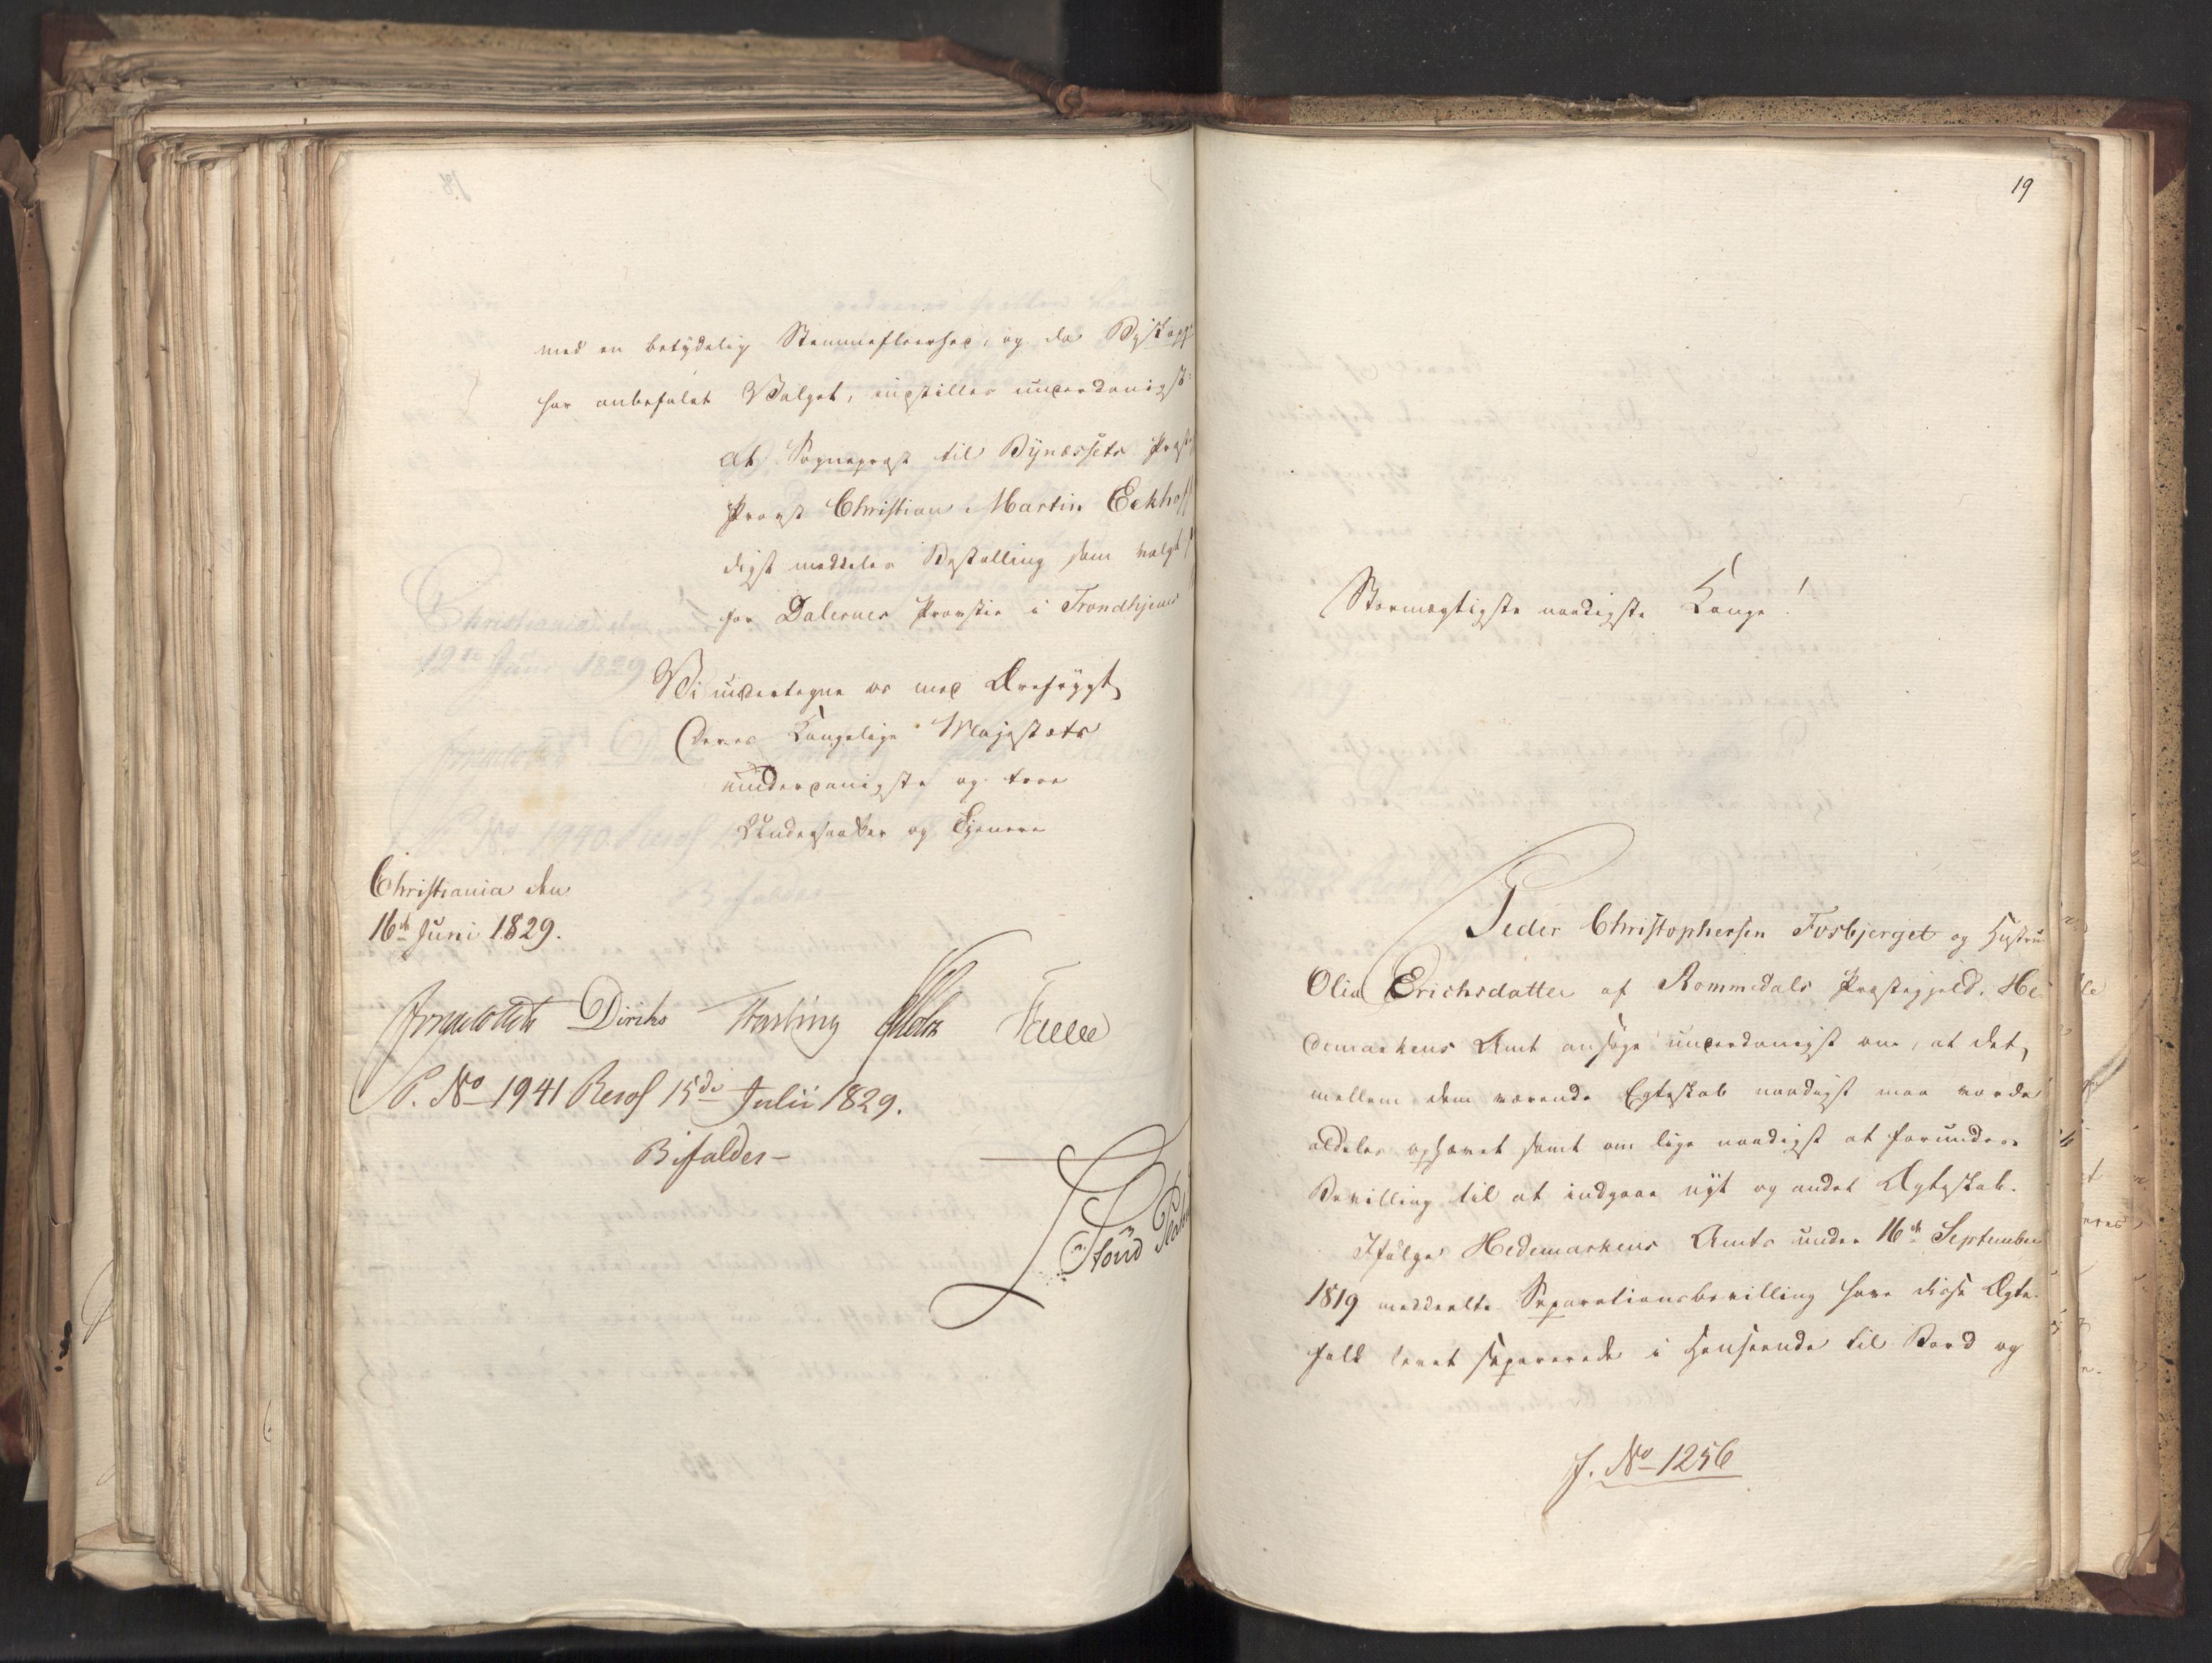 med en betydelig Stemmefleerhed, og da
har anbefalet Valget, indstilles underdanigst:
At Sogneprest til Bynessets
Provst Christian Martin Eckhoff
digst meddeles Bestalling som valgt
for Dalernes Provstie i Trondhjems
Vi undertegne os med Ærefrygt
Deres Kongelige Majestæts
underdanigste og troe
Undersaatter og Tjenere
Christiania den
16de Juni 1829.
Diriks Fasting Falbe
P. No 1941 Resol 15de Julii 1829.
Bifaldes –
19
Stormægtigste naadigste Konge!
Peder Christophersen Fosbjerget og Hustru
Olia Erichsdatter af Rommedals Præstegjeld, He-
demarkens Amt ansøge underdanigst om, at det,
mellem dem værende Egteskab naadigst maa vorde
aldeles ophævet samt om lige naadigst at forundes
Bevilling til at indgaae nyt og andet Ægteskab.
Ifølge Hedemarkens Amts under 16de September
1819 meddeelte Separationsbevilling have disse Ægte-
folk levet separerede i Henseende til Bord og
J. No 1256